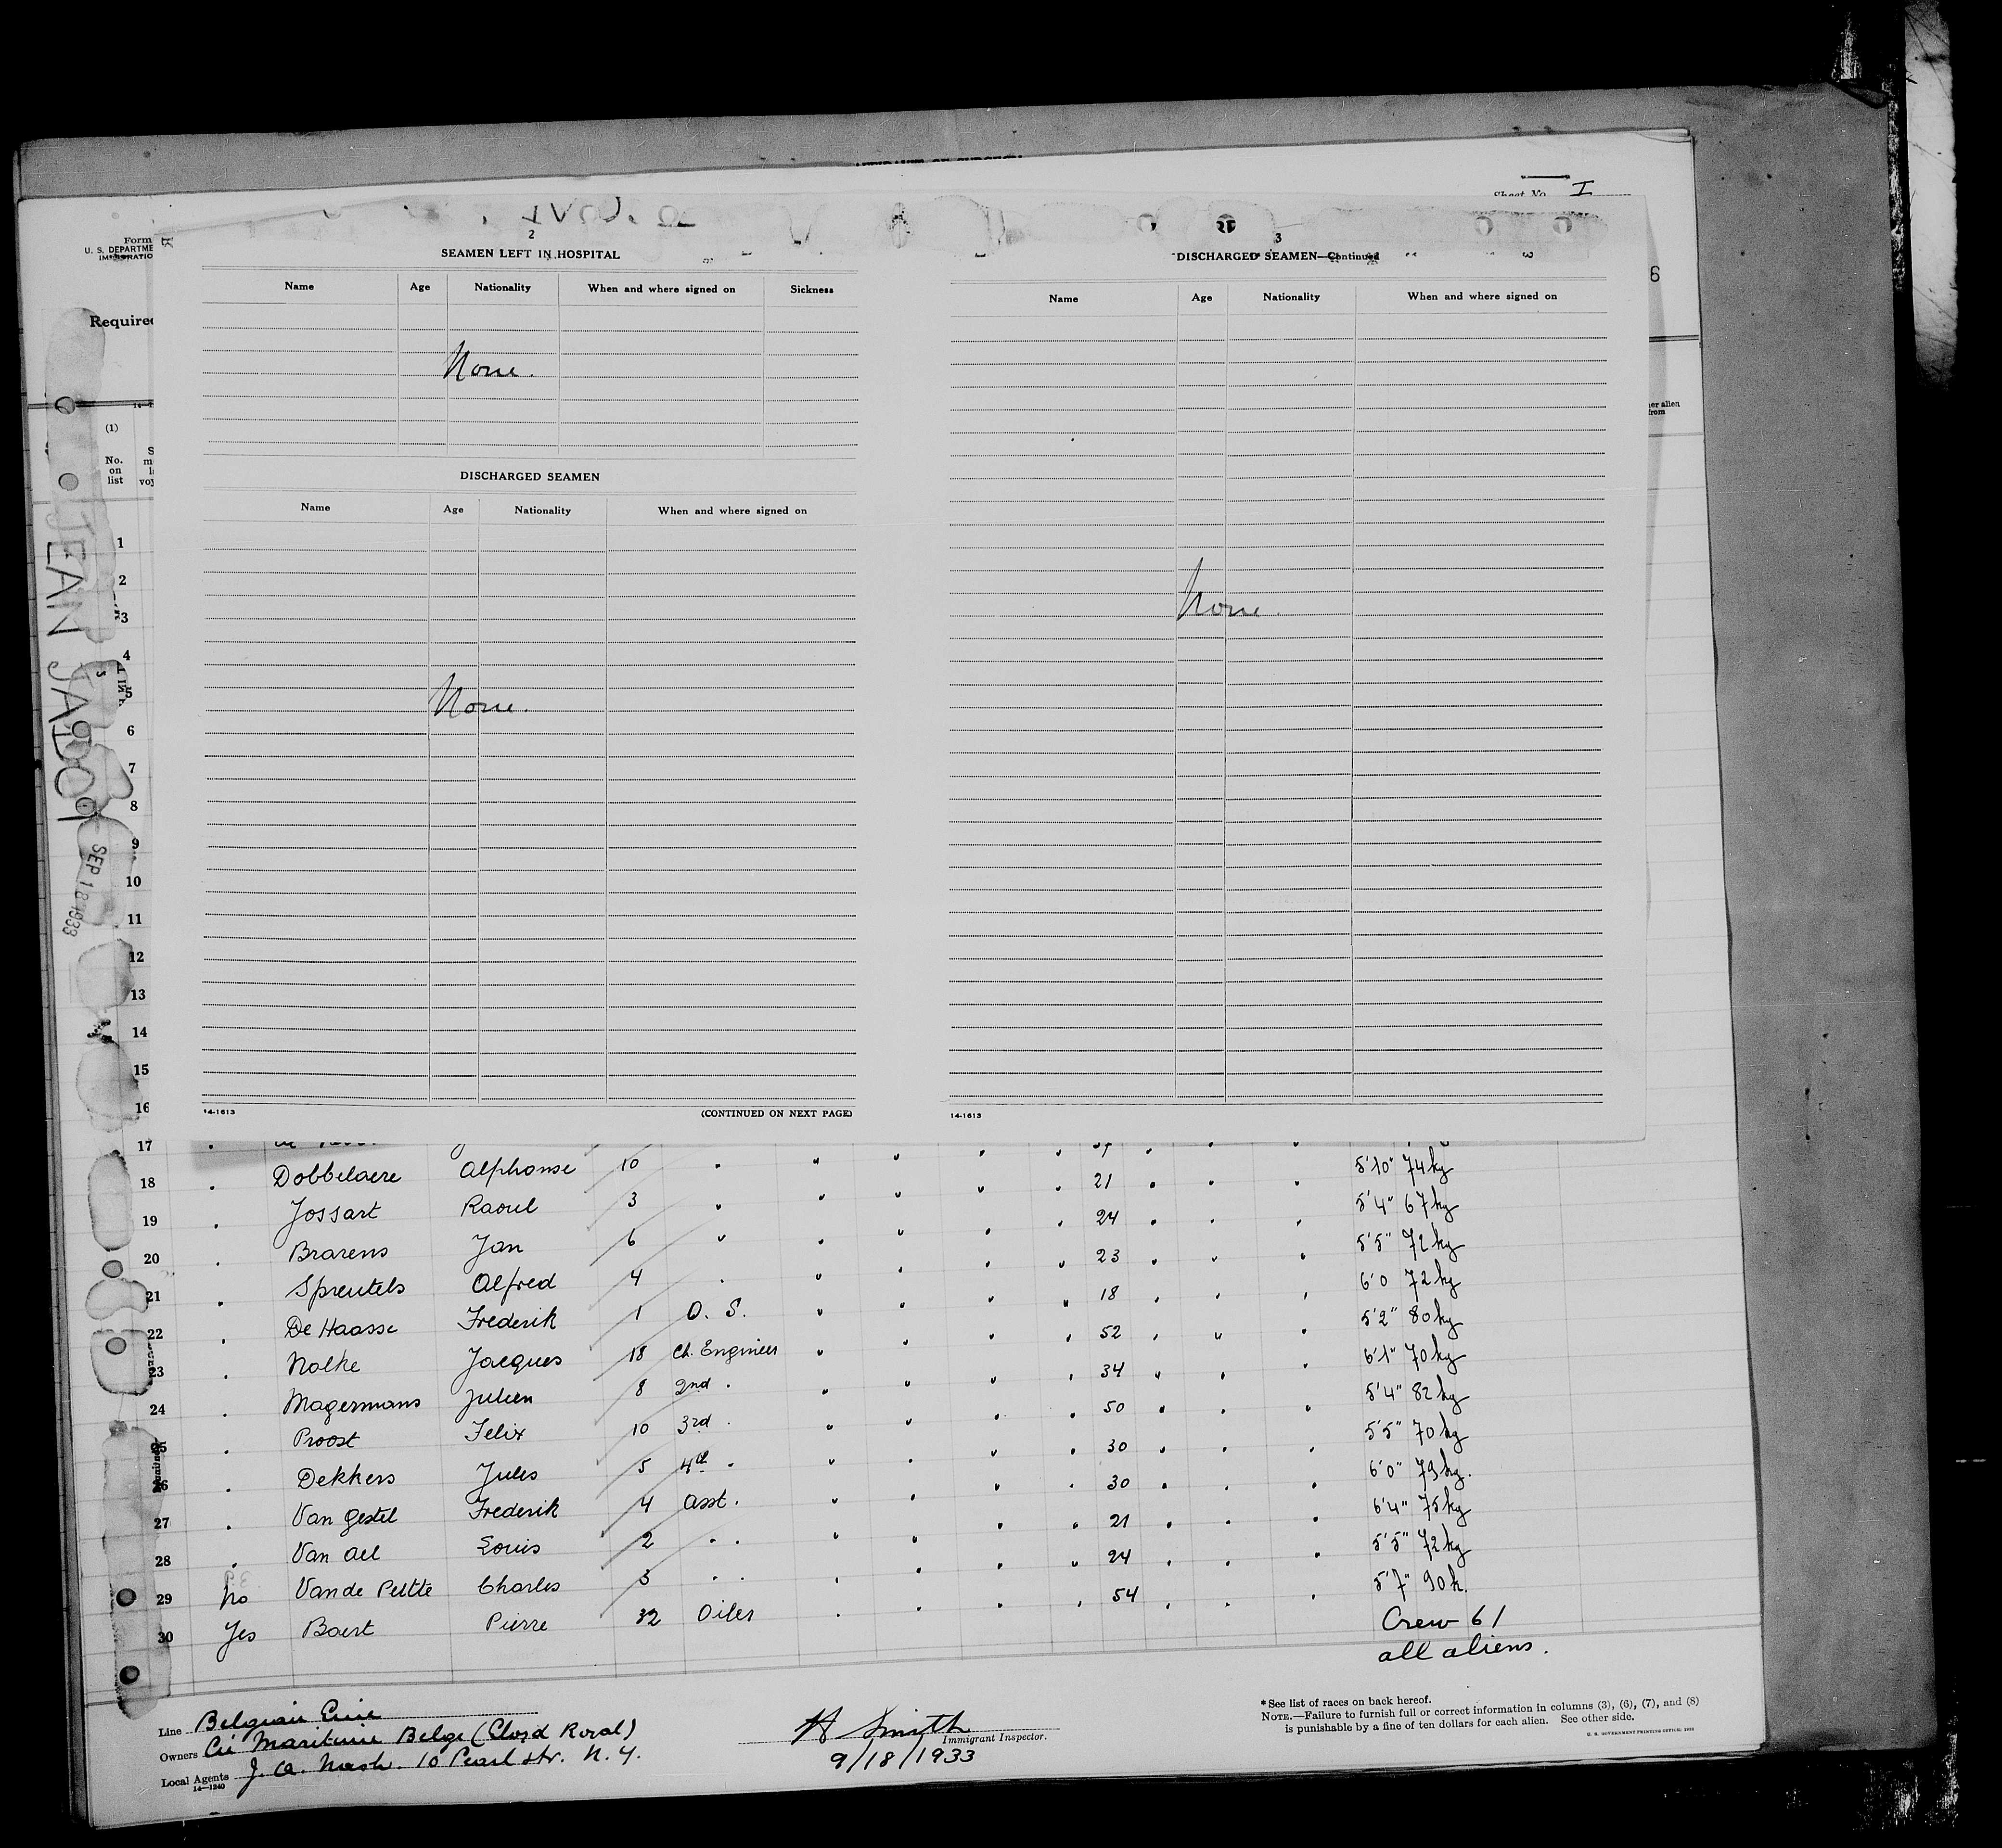 Sheet No. I
Form
U. S. DEPARTME
IMMIGRATIO
Required
6
2
SEAMEN LEFT IN HOSPITAL
Name Age Nationality When and where signed on Sickness
None.
DISCHARGED SEAMEN
Name Age Nationality When and where signed on
None.
14-1613 (CONTINUED ON NEXT PAGE)
3
DISCHARGED SEAMEN—Continued
Name Age Nationality When and where signed on
None.
14-1613
her alien
from
(1)
No.
on
list
JEAN JADOT
SEP 18 1933
1
2
3
4
5
6
7
8
9
10
11
12
13
14
15
16
17
18 Dobbelaere Alphonse 10 " " " " " 21 " " " 5'10" 74kg
19 Jossart Raoul 3 " " " " " 24 " " " 5'4" 67kg
20 Brarens Jan 6 " " " " " 23 " " " 5'5" 72kg
21 Spreutels Alfred 4 " " " " " 18 " " " 6'0 72kg
22 De Haasse Frederik 1 O. S. " " " " 52 " " " 5'2" 80kg
23 Nolke Jacques 18 Ch. Engineer " " " " 34 " " " 6'1" 70kg
24 Magermans Julien 8 2nd " " " " " 50 " " " 5'4" 82kg
25 Proost Felix 10 3rd " " " " " 30 " " " 5'5" 70kg
26 Dekkers Jules 5 4th " " " " " 30 " " " 6'0" 79kg.
27 Van Gestel Frederik 4 Asst. " " " " 21 " " " 6'4" 75kg
28 Van Ael Louis 2 " " " " " " 24 " " " 5'5" 72kg
29 No Van de Peltte Charles 3 " " " " " " 54 " " " 5'7" 90k.
30 Yes Baert Pierre 32 Oiler " "
Crew 61
all aliens.
Line Belgian Line
Owners Cie Maritime Belge (Lloyd Royal)
Local Agents J. A. Nash. 10 Pearl str. N. Y.
14—1240
H Smith
Immigrant Inspector.
9/18/1933
*See list of races on back hereof.
NOTE.—Failure to furnish full or correct information in columns (3), (6), (7), and (8)
is punishable by a fine of ten dollars for each alien. See other side.
U. S. GOVERNMENT PRINTING OFFICE: 1932